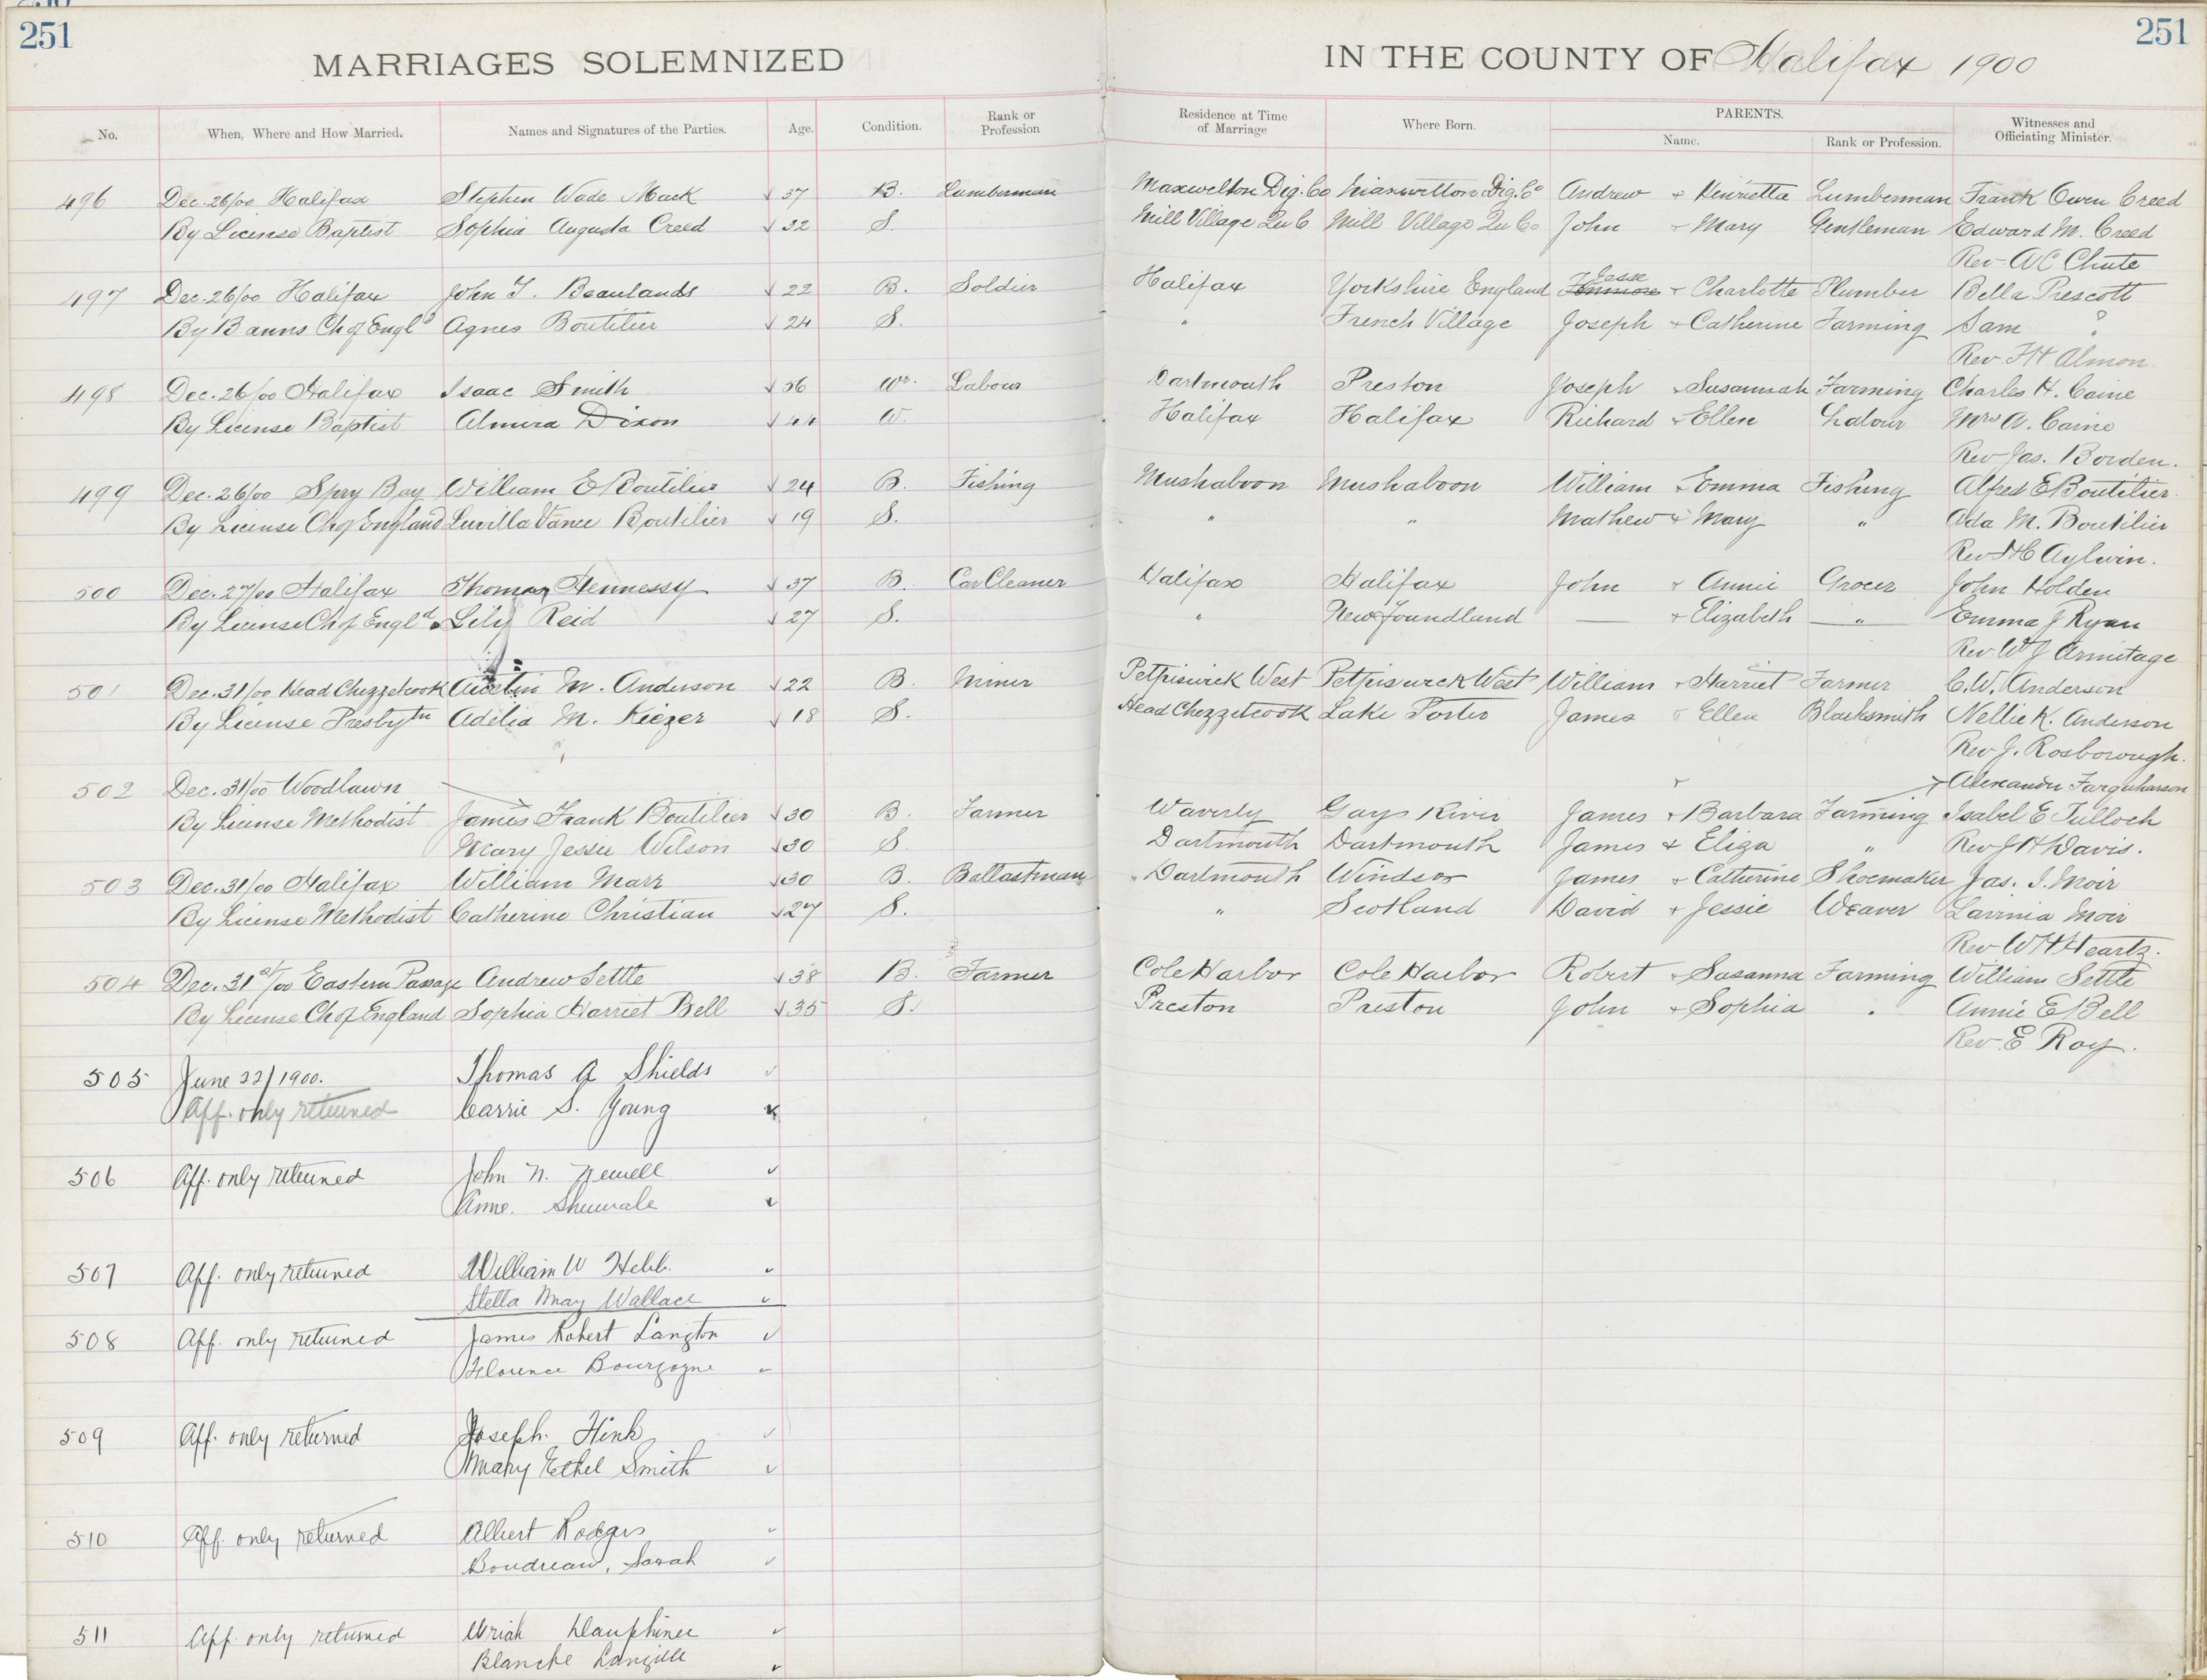 251
251
MARRIAGES SOLEMNIZED IN THE COUNTY OF Halifax 1900
No. When, Where and How Married. Names and Signatures of the Parties. Age. Condition. Rank or Profession Residence at Time of Marriage Where Born. PARENTS. Name. Rank or Profession. Witnesses and Officiating Minister.
496 Dec. 26/00 Halifax Stephen Wade Mack √ 37 B. Lumberman Maxwelton Dig. Co Maxwelton Dig. Co Andrew + Henrietta Lumberman Frank Owen Creed
By License Baptist Sophia Augusta Creed √ 32 S. Mill Village Qu C Mill Village Qu Co John + Mary Gentleman Edward M. Creed
Rev A C Chute
497 Dec. 26/00 Halifax John T. Beaulands √ 22 B. Soldier Halifax Yorkshire England Jesse + Charlotte Plumber Bella Prescott
By Banns Ch of Engld Agnes Boutilier √ 24 S. " French Village Joseph + Catherine Farming Sam ?
Rev F H Almon
498 Dec. 26/00 Halifax Isaac Smith √ 56 Wr. Labour Dartmouth Preston Joseph + Susannah Farming Charles H. Caine
By License Baptist Almira Dixon √ 44 W. Halifax Halifax Richard + Ellen Labour Mrs A. Caine
Rev Jas. Borden.
499 Dec. 26/00 Spry Bay William E Boutilier √ 24 B. Fishing Mushaboon Mushaboon William + Emma Fishing Alfred E Boutilier
By License Ch of England Luvilla Vance Boutilier √ 19 S. " " Mathew + Mary " Ada M. Boutilier
Rev H C Aylwin.
500 Dec. 27/00 Halifax Thomas Hennessy √ 37 B. Car Cleaner Halifax Halifax John + Annie Grocer John Holden
By License Ch of Engld. Lily Reid √ 27 S. " New Foundland — + Elizabeth — " — Emma J Ryan
Rev W J Armitage
501 Dec. 31/00 Head Chezzetcook Austin M. Anderson √ 22 B. Miner Petpiswick West Petpiswick West William + Harriet Farmer C. W. Anderson
By License Presbytn Adelia M. Keizer √ 18 S. Head Chezzetcook Lake Porter James + Ellen Blacksmith Nellie K. Anderson
Rev J. Rosborough.
502 Dec. 31/00 Woodlawn Alexander Farquharson
By License Methodist James Frank Boutilier √ 30 B. Farmer Waverly Gays River James + Barbara Farming Isabel E Tulloch
Mary Jessie Wilson √ 30 S. Dartmouth Dartmouth James + Eliza " Rev J H Davis.
503 Dec. 31/00 Halifax William Marr √ 30 B. Ballastman Dartmouth Windsor James + Catherine Shoemaker Jas. I. Moir
By License Methodist Catherine Christian √ 27 S. " Scotland David + Jessie Weaver Lavinia Moir
Rev W H Heartz.
504 Dec. 31st/00 Eastern Passage Andrew Settle √ 38 B. Farmer Cole Harbor Cole Harbor Robert + Susanna Farming William Settle
By License Ch of England Sophia Harriet Bell √ 35 S. Preston Preston John + Sophia " Annie E Bell
Rev. E Roy.
505 June 22/1900. Thomas A Shields √
Aff. only returned Carrie S. Young √
506 Aff. only returned John N. Newell √
Anne. √
507 Aff. only returned William W Hebb. √
Stella May Wallace √
508 Aff. only returned James Robert Langton √
Florence Bourgogne √
509 Aff. only returned Joseph. Hink √
Mary Ethel Smith √
510 Aff. only returned Albert Rodgers √
Boudreau, Sarah √
511 Aff. only returned Uriah Dauphinee √
Blanche Langille √